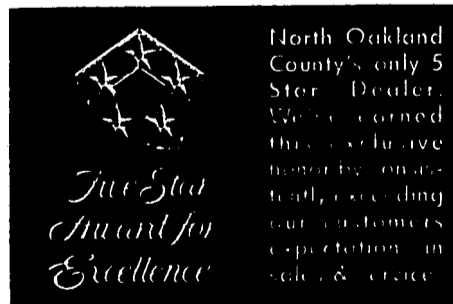 Five Star
Award for
Excellence
North Oakland
County's only 5
Star Dealer.
We've earned
this exclusive
honor by consis-
tently exceeding
our customers
expectation in
sales &